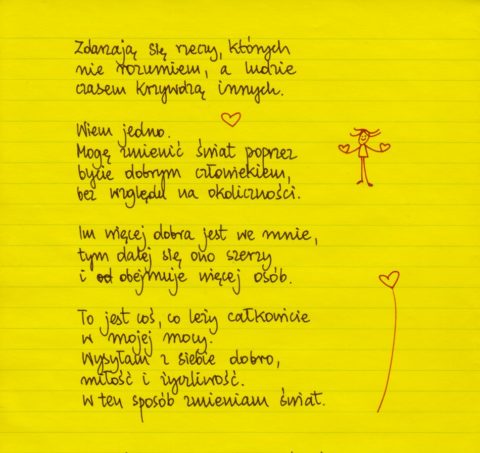 Zdarzają się rzeczy, których
nie rozumiem, a ludzie
czasem krzywdzą innych.
Wiem jedno.
Mogę zmienić świat poprzez
bycie dobrym człowiekiem,
bez względu na okoliczności.
Im więcej dobra jest we mnie,
tym dalej się ono szerzy
i obejmuje więcej osób.
To jest coś, co leży całkowicie
w mojej mocy.
Wysyłam z siebie dobro,
miłość i życzliwość.
W ten sposób zmieniam świat.